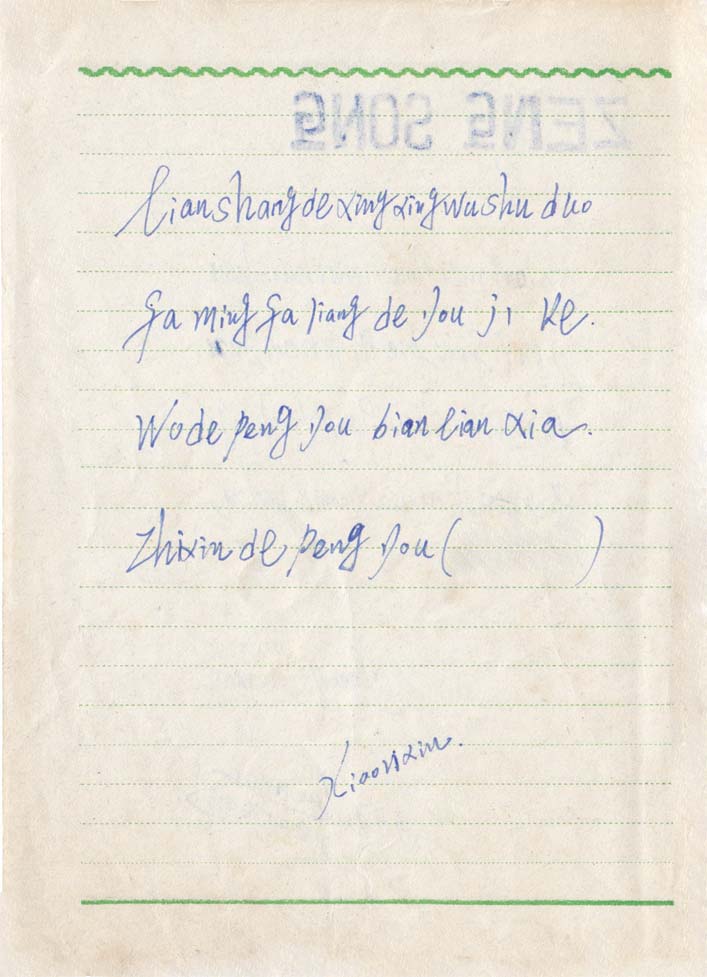 ZENG SONG
lianshangdexingxingwushu duo
fa ming fa liang de you ji ke.
Wode peng you bian lian xia.
Zhixin de peng you (          )
Xiaorixin.